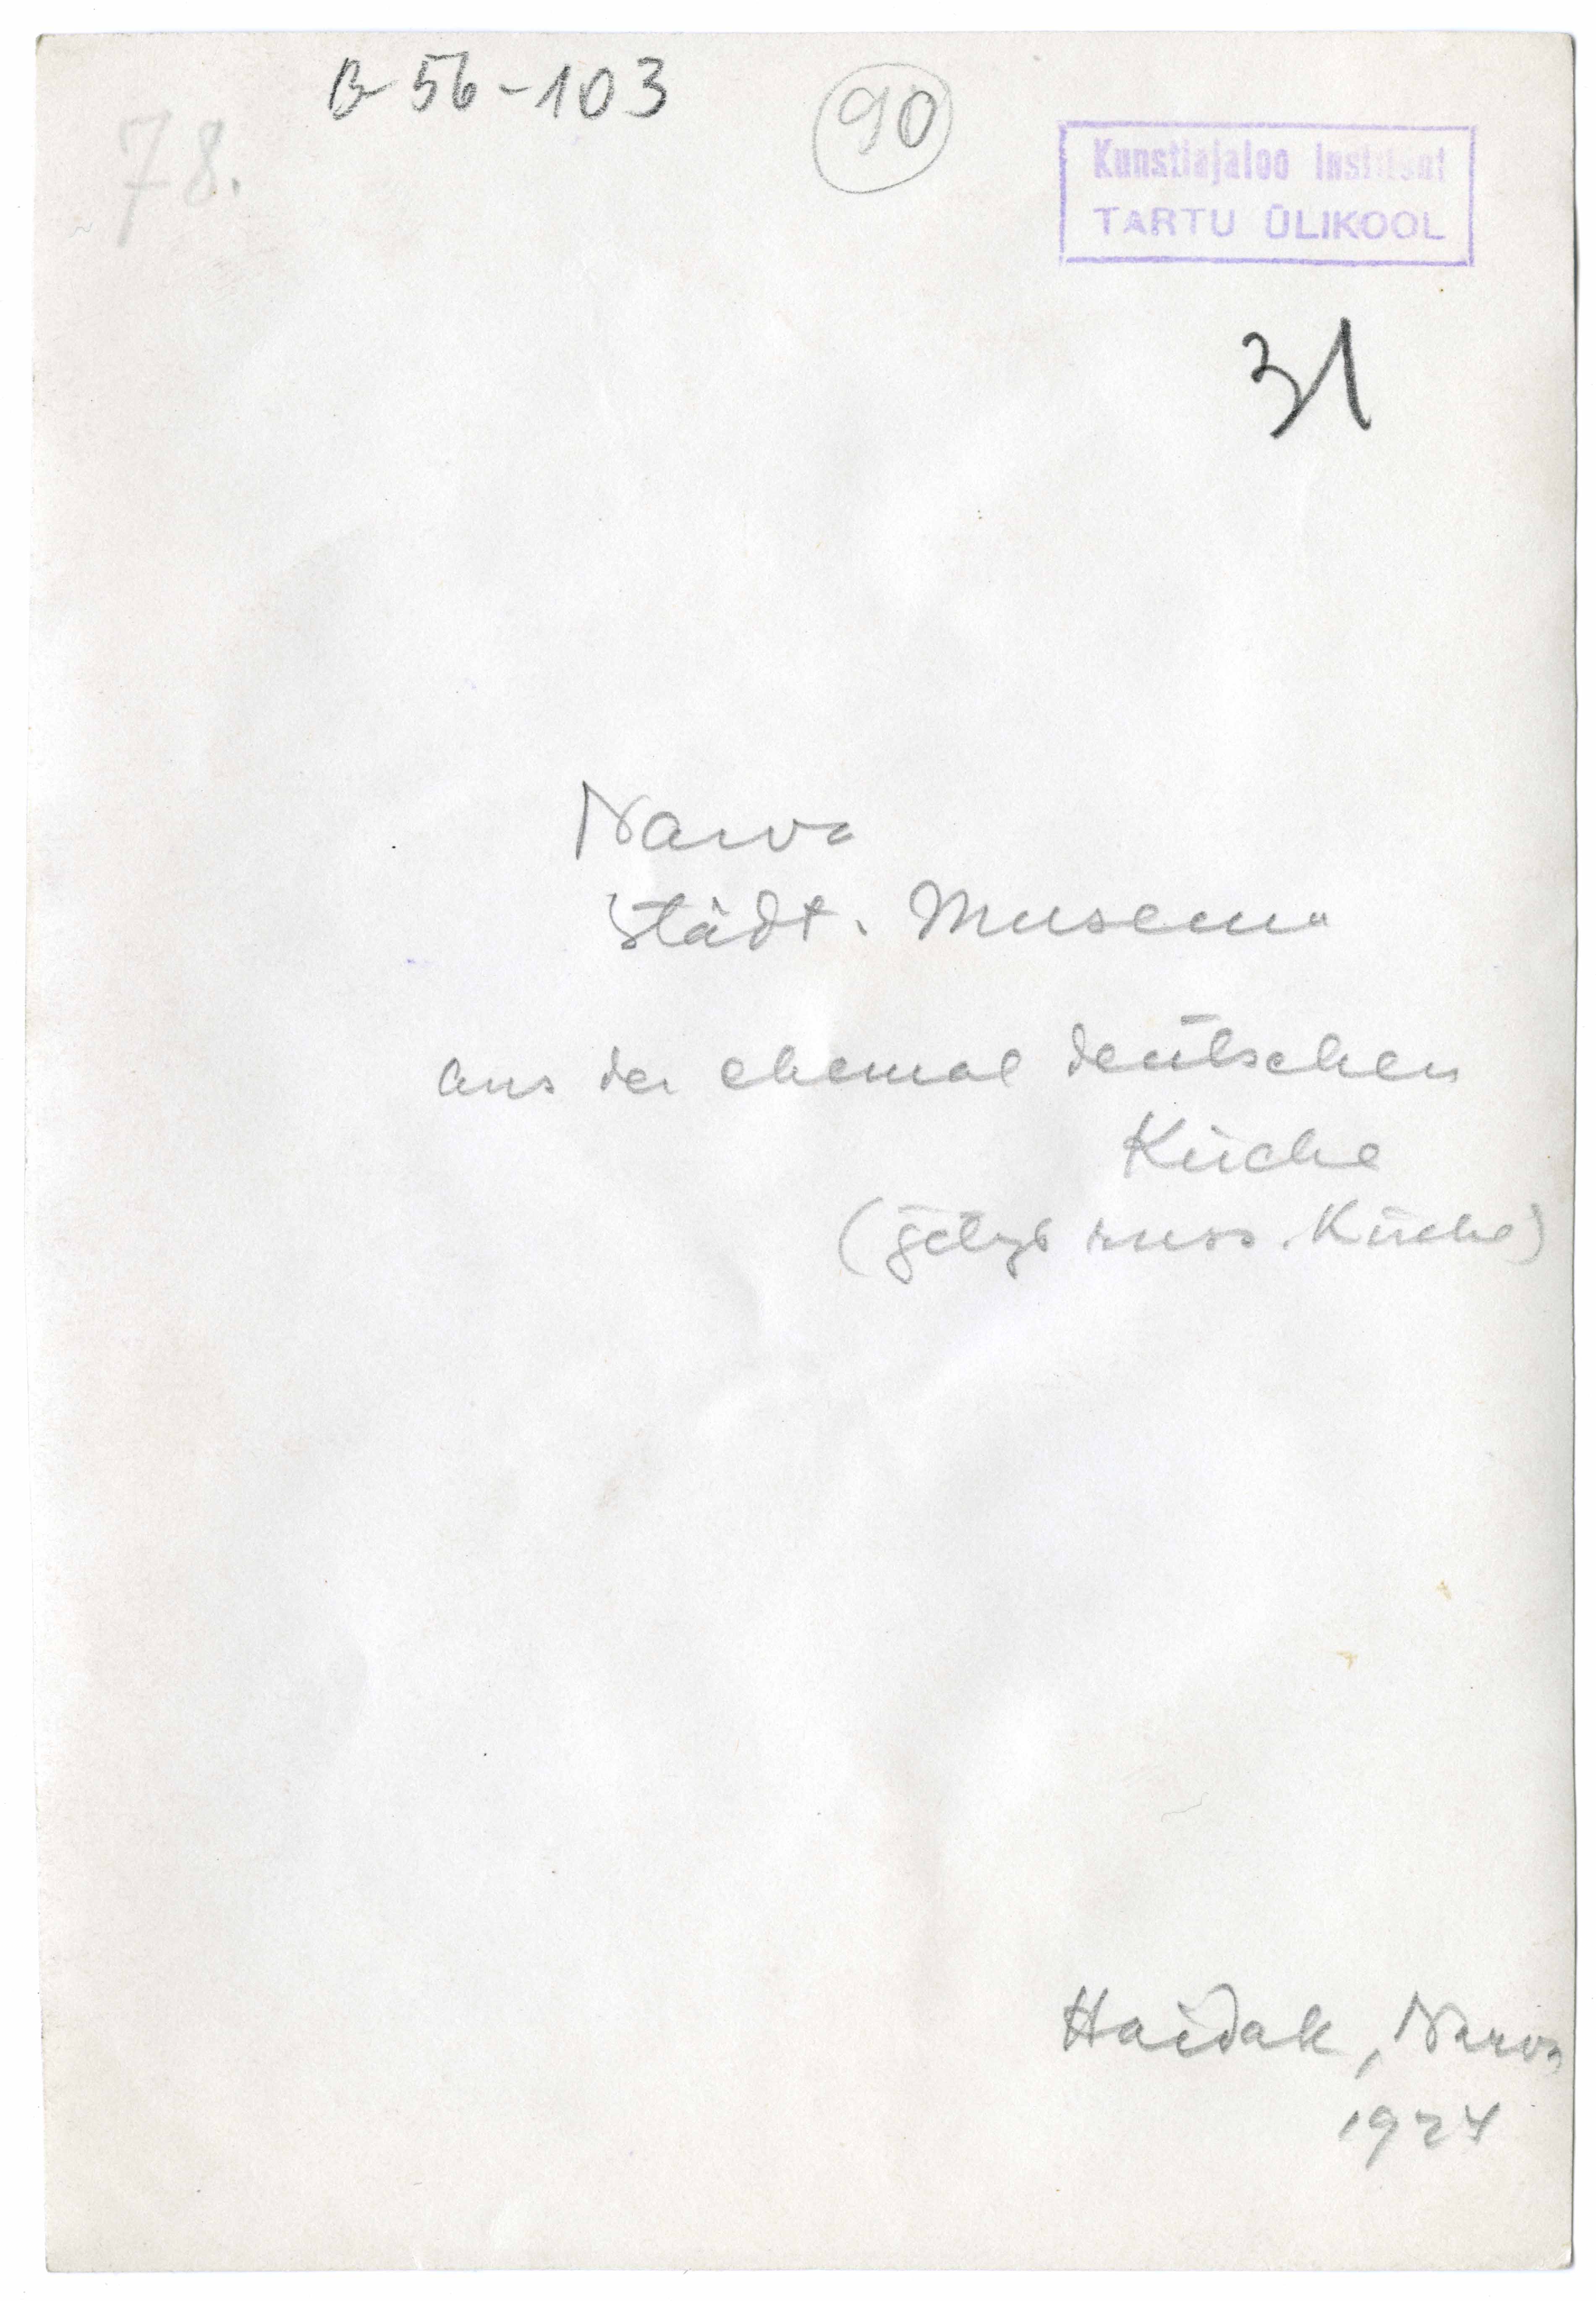 B-56-103
90
78.
Kunstiajaloo Instituut
TARTU ÜLIKOOL
31
Narva
Städt. Museum
aus der ehemal deutschen
Kirche
(jetzt russ. Kirche)
Haidak, Narva
1924